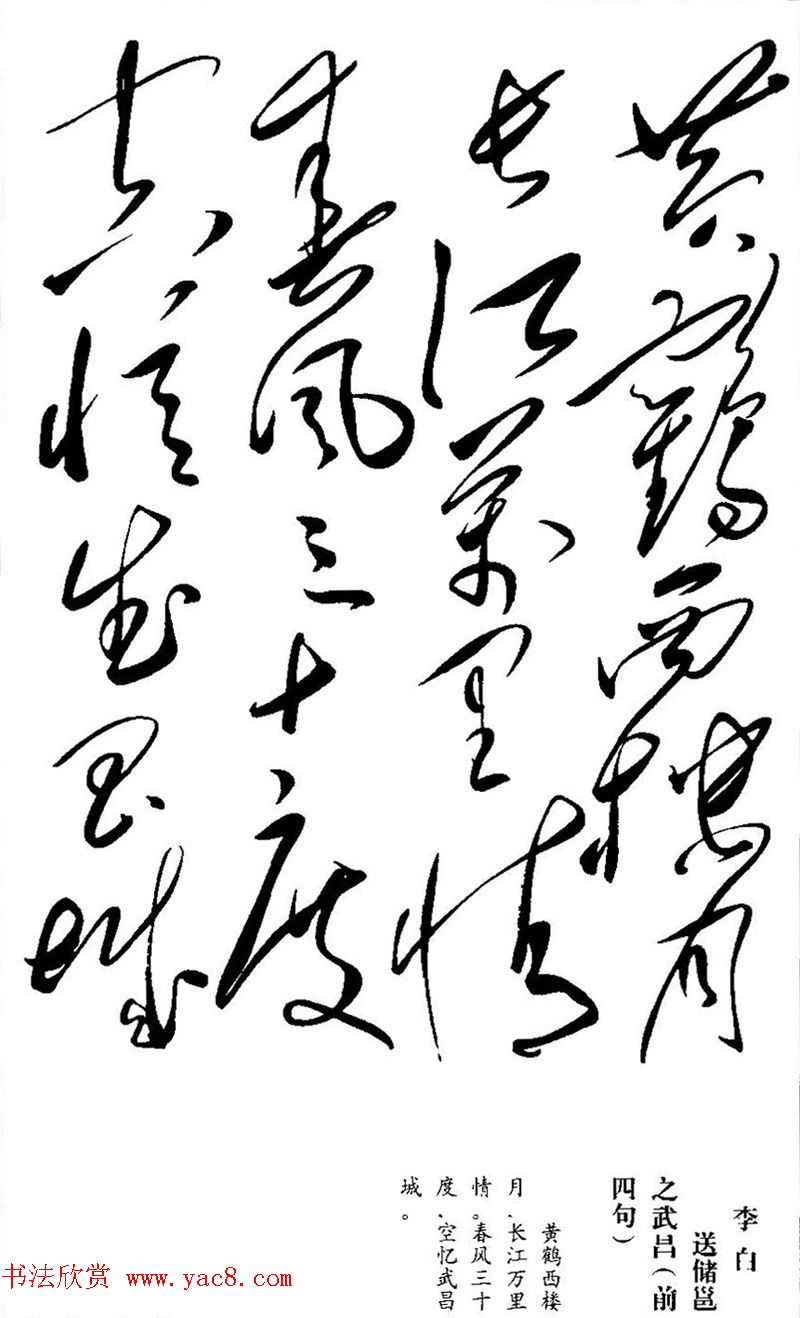 黄鹤西楼月
长江万里情
春风三十度
空忆武昌城
李白
送储邕
之武昌（前
四句）
黄鹤西楼
月，长江万里
情。春风三十
度，空忆武昌
城。
书法欣赏 www.yac8.com